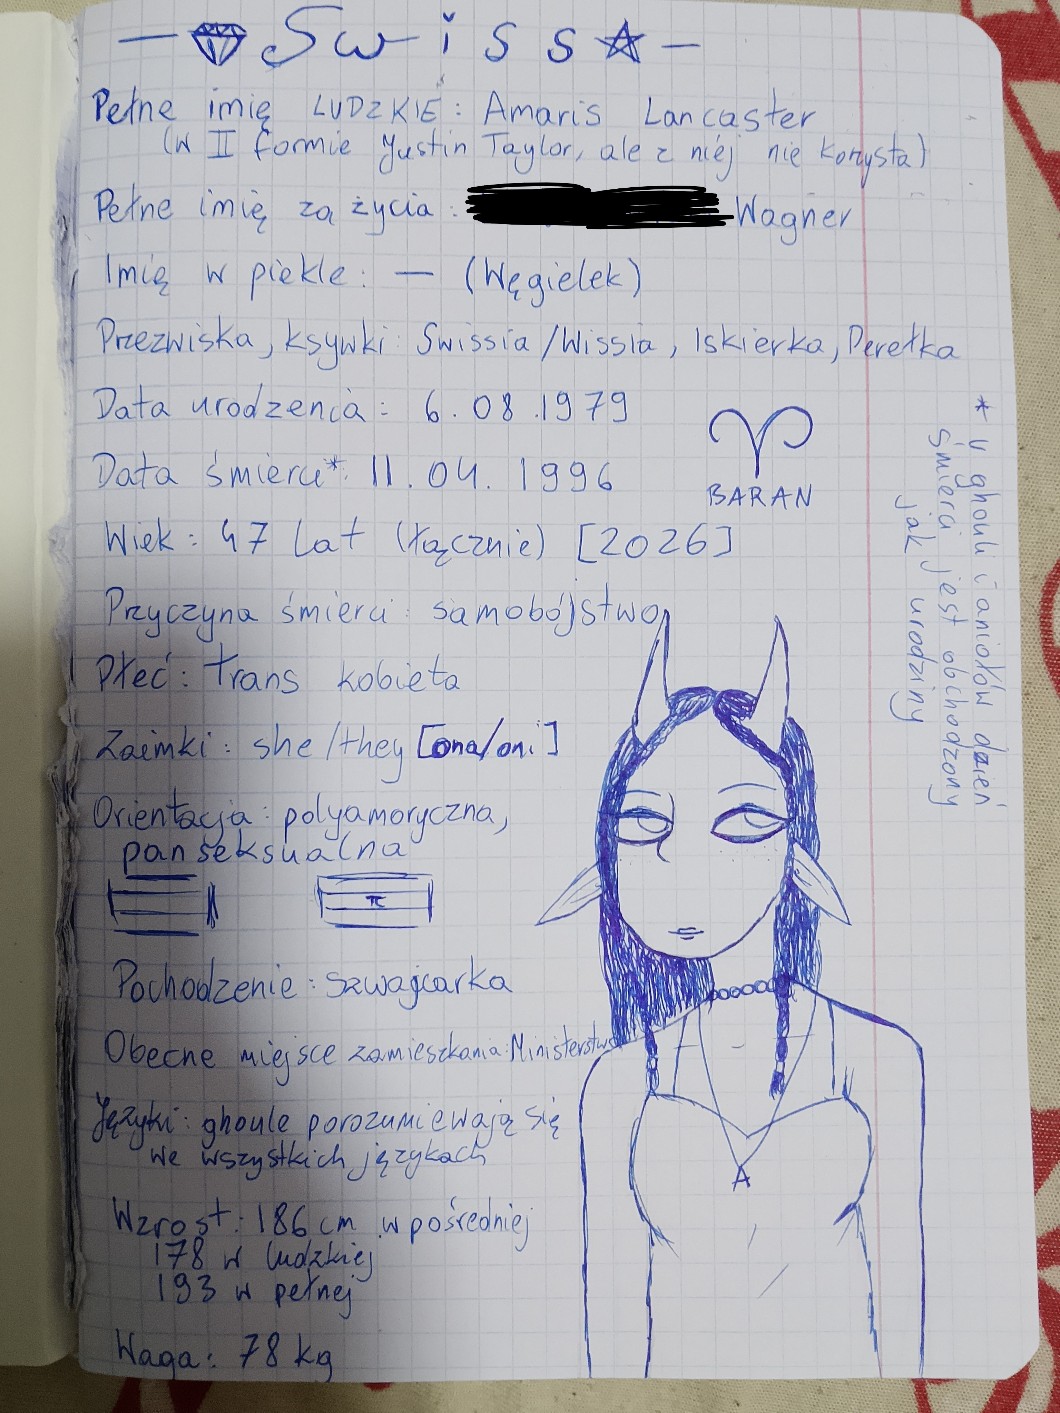 Swiss
Pełne imię LUDZKIE: Amaris Lancaster
(w II formie Justin Taylor, ale z niej nie korzysta)
Pełne imię za życia: Wagner
Imię w piekle: — (Węgielek)
Przezwiska, ksywki: Swissia/Wissia, Iskierka, Perełka
Data urodzenia: 6.08.1979
Data śmierci*: 11.04.1996
BARAN
Wiek: 47 lat (łącznie) [2026]
Przyczyna śmierci: samobójstwo
Płeć: trans kobieta
Zaimki: she/they [ona/oni]
Orientacja: polyamoryczna,
panseksualna
π
Pochodzenie: szwajcarka
Obecne miejsce zamieszkania: Ministerstwo
Języki: ghoule porozumiewają się
we wszystkich językach
Wzrost: 186 cm w pośredniej
178 w ludzkiej
193 w pełnej
Waga: 78 kg
A
* u ghouli i aniołów dzień
śmierci jest obchodzony
jak urodziny